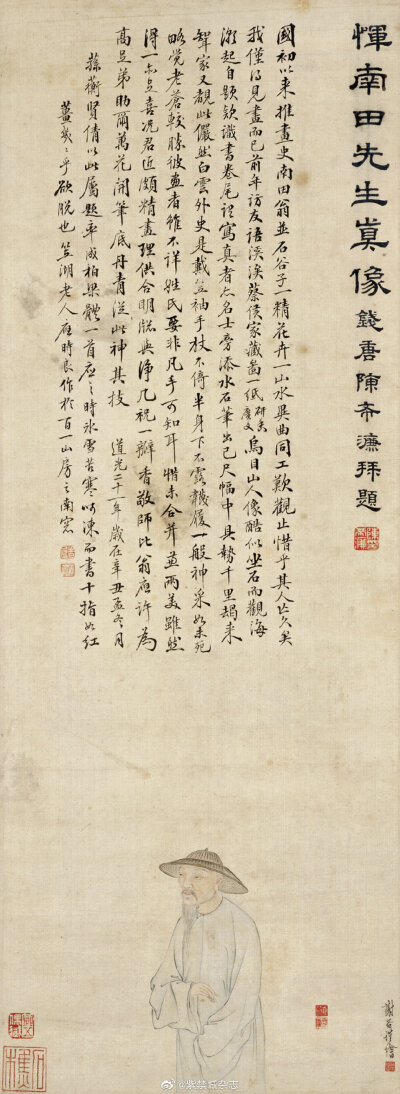 惲南田先生真像
錢唐陳希濂拜題
國初以來推畫史南田翁並石谷子一精花卉一山水異曲同工歎觀止惜乎其人亡久矣
我僅得見畫而已前年訪友語溪溪蔡侯家藏啚一紙硏香廣文烏目山人像酷似坐石而觀海
潮起自題欵識書卷尾證寫真者亦名士旁添水石筆出己尺幅中具勢千里朅來
聟家又覩此儼然白雲外史是戴笠袖手杖不倚半身下不露韈履一般神采如未死
略覺老蒼較勝彼畫者雖不詳姓氏要非凡手可知耳惜未合并並兩美雖然
得一亦足喜況君近頗精畫理供合明牕與淨几祝一瓣香敬師比翁應許為
高足弟助爾萬花開筆底丹青從此神其技
道光二十一年歲在辛丑孟冬月
蓀蘅賢倩以此屬題率成柏梁體一首應之時氷雪苦寒呵凍而書十指如紅
薑岌岌乎欲脫也笠湖老人應時良作於百一山房之南窓
@紫禁城杂志